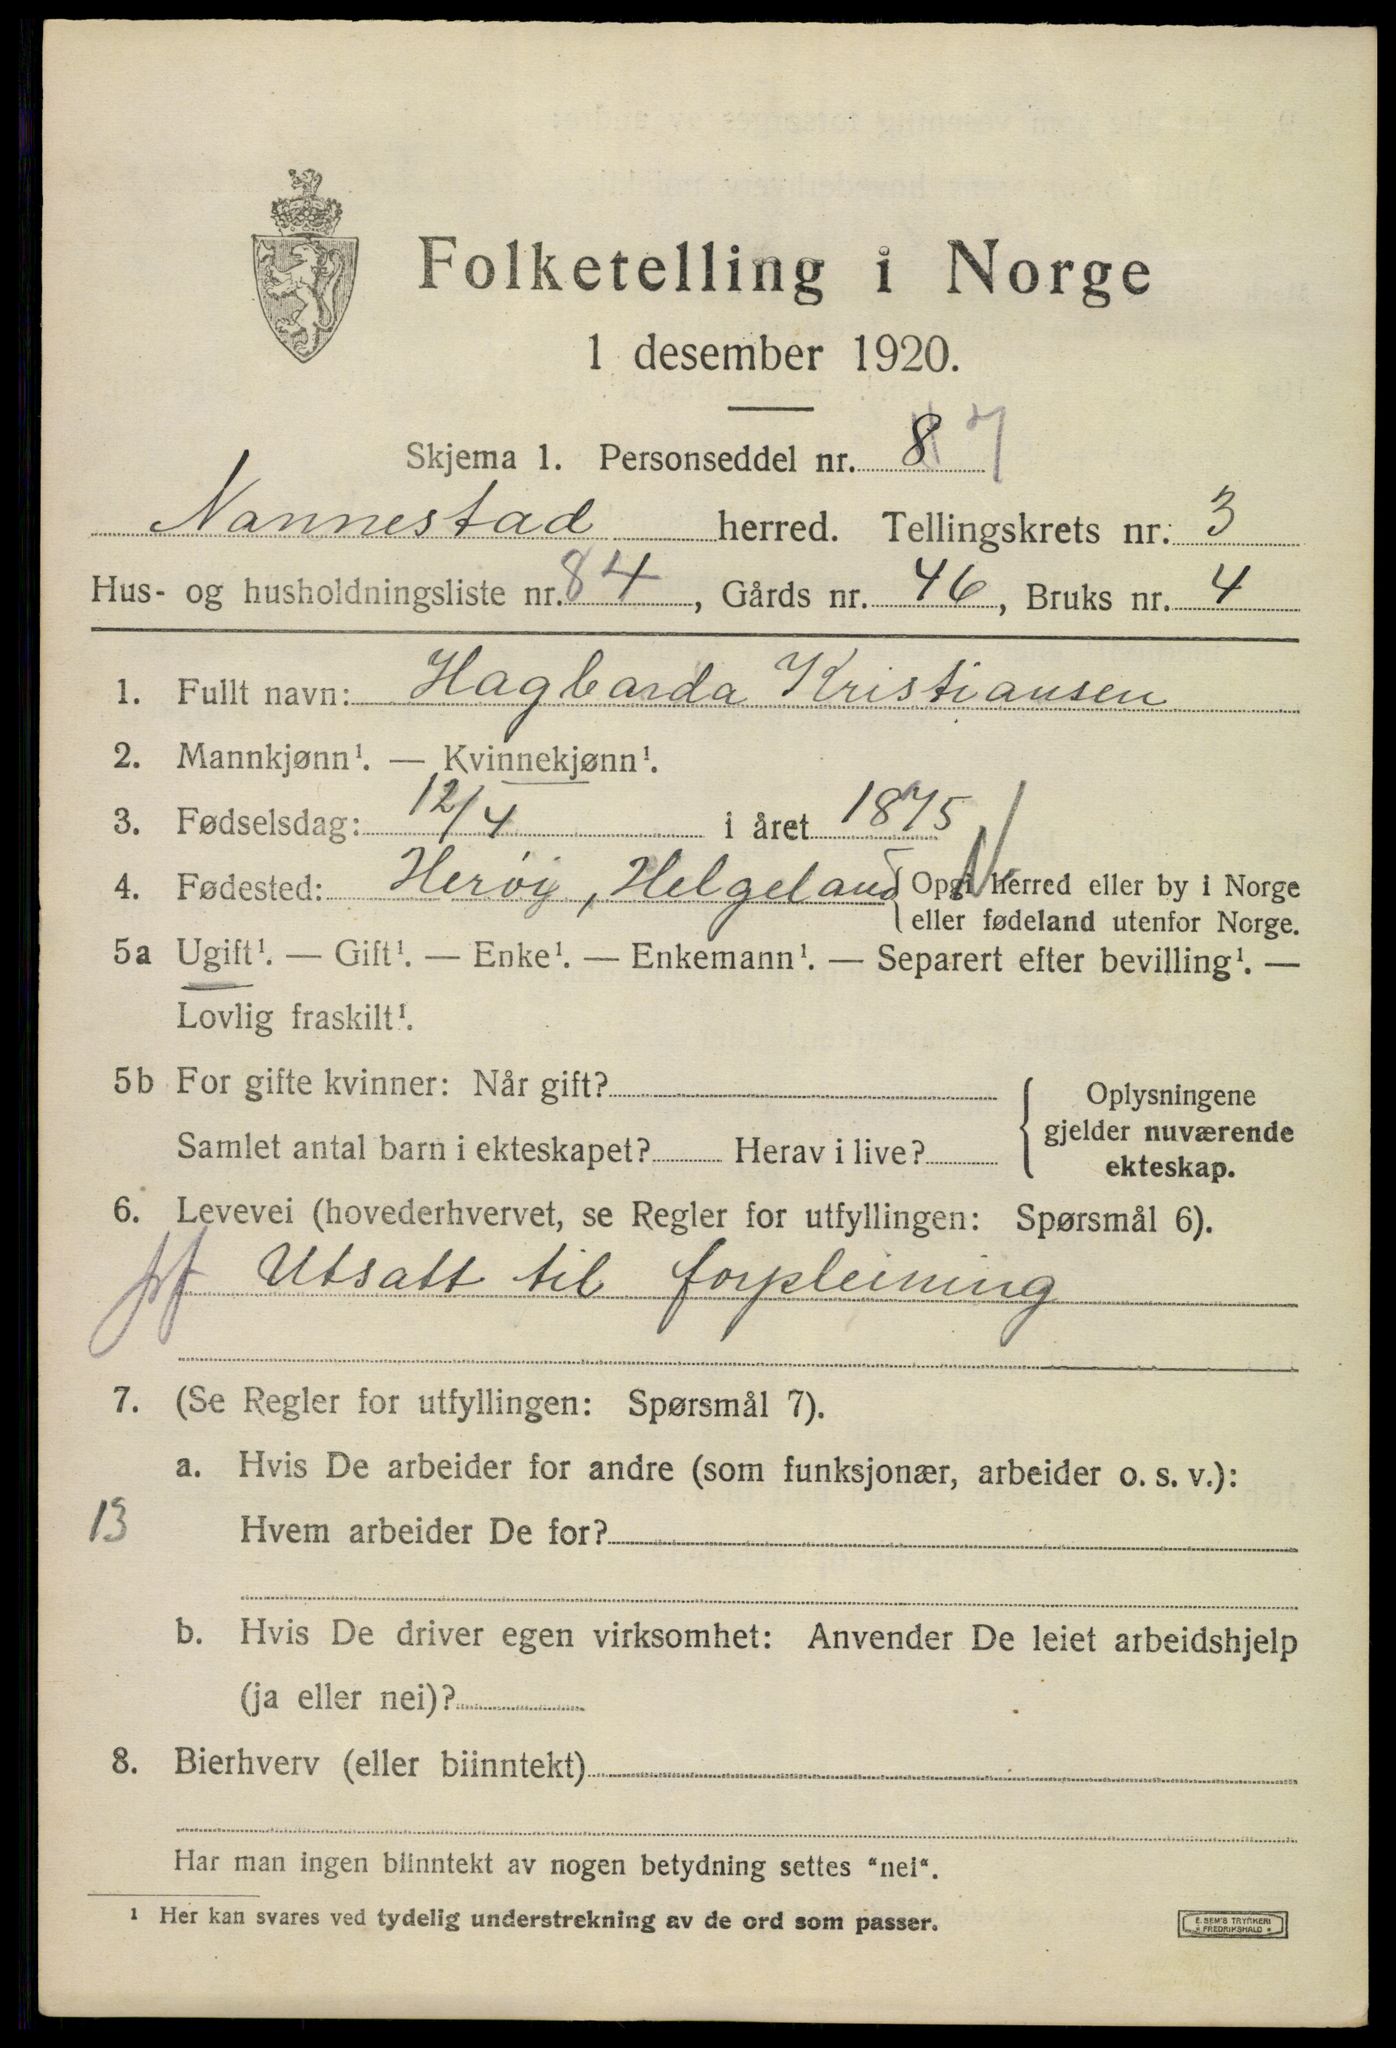 Folketelling i Norge
1 desember 1920.
Skjema 1. Personseddel nr. 8 7
Nannestad herred. Tellingskrets nr. 3
Hus- og husholdningsliste nr. 84, Gårds nr. 46, Bruks nr. 4
1. Fullt navn: Hagbarda Kristiansen
2. Mannkjønn¹. — Kvinnekjønn¹.
3. Fødselsdag: 12/4 i året 1875
4. Fødested: Herøy, Helgeland { Opgi herred eller by i Norge
eller fødeland utenfor Norge.
5a Ugift¹. — Gift¹. — Enke¹. — Enkemann¹. — Separert efter bevilling¹. —
Lovlig fraskilt¹.
5b For gifte kvinner: Når gift?
Samlet antal barn i ekteskapet? Herav i live?
Oplysningene
gjelder nuværende
ekteskap.
6. Levevei (hovederhvervet, se Regler for utfyllingen: Spørsmål 6).
Utsatt til forpleining
7. (Se Regler for utfyllingen: Spørsmål 7).
a. Hvis De arbeider for andre (som funksjonær, arbeider o. s. v.):
13 Hvem arbeider De for?
b. Hvis De driver egen virksomhet: Anvender De leiet arbeidshjelp
(ja eller nei)?
8. Bierhverv (eller biinntekt)
Har man ingen biinntekt av nogen betydning settes "nei".
¹ Her kan svares ved tydelig understrekning av de ord som passer.
E. SEM'S TRYKKERI
FREDRIKSHALD